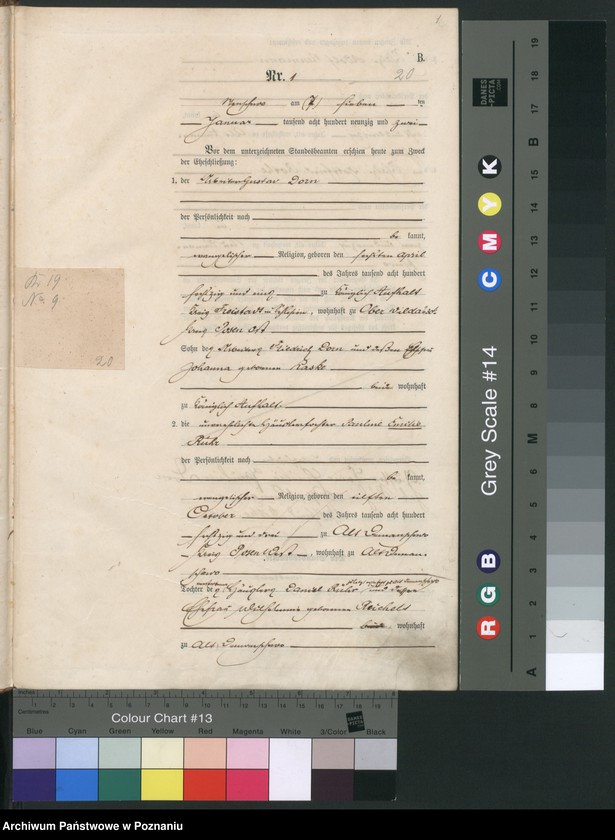 1.
B.
Nr. 1
20
am (7.) sieben ten
Januar tausend acht hundert neunzig und zwei
Vor dem unterzeichneten Standesbeamten erschien heute zum Zweck
der Eheschließung:
1. der Arbeiter Gustav Dorn
der Persönlichkeit nach
be kannt,
evangelischer Religion, geboren den sechsten April
des Jahres tausend acht hundert
sechszig und eins zu Königlich Aufhalt
Kreis Freistadt in Schlesien, wohnhaft zu Ober Wilda
Kreis Posen Ost
Sohn des Friedrich Dorn und dessen Ehefrau
Johanna geborenen Raske
beide wohnhaft
zu Königlich Aufhalt
2. die unverehelichte Häuslertochter Pauline Emilie
Rühr
der Persönlichkeit nach
be kannt,
evangelischer Religion, geboren den elften
October des Jahres tausend acht hundert
sechszig und drei zu Alt Demanschewo
Kreis Posen West, wohnhaft zu Alt Deman-
schewo
Tochter des Häuslers Daniel Rühr und dessen
Ehefrau Wilhelmine geborenen Reichelt
wohnhaft
zu Alt Demanschewo
Nr 19
No 9
20
Inches
Centimetres
Colour Chart #13
DANES
PICTA
.COM
Blue Cyan Green Yellow Red Magenta White 3/Color Black
Grey Scale #14
DANES
PICTA
.COM
R G B C M Y K
A 1 2 3 4 5 6 M 8 9 10 11 12 13 14 15 B 17 18 19
Archiwum Państwowe w Poznaniu